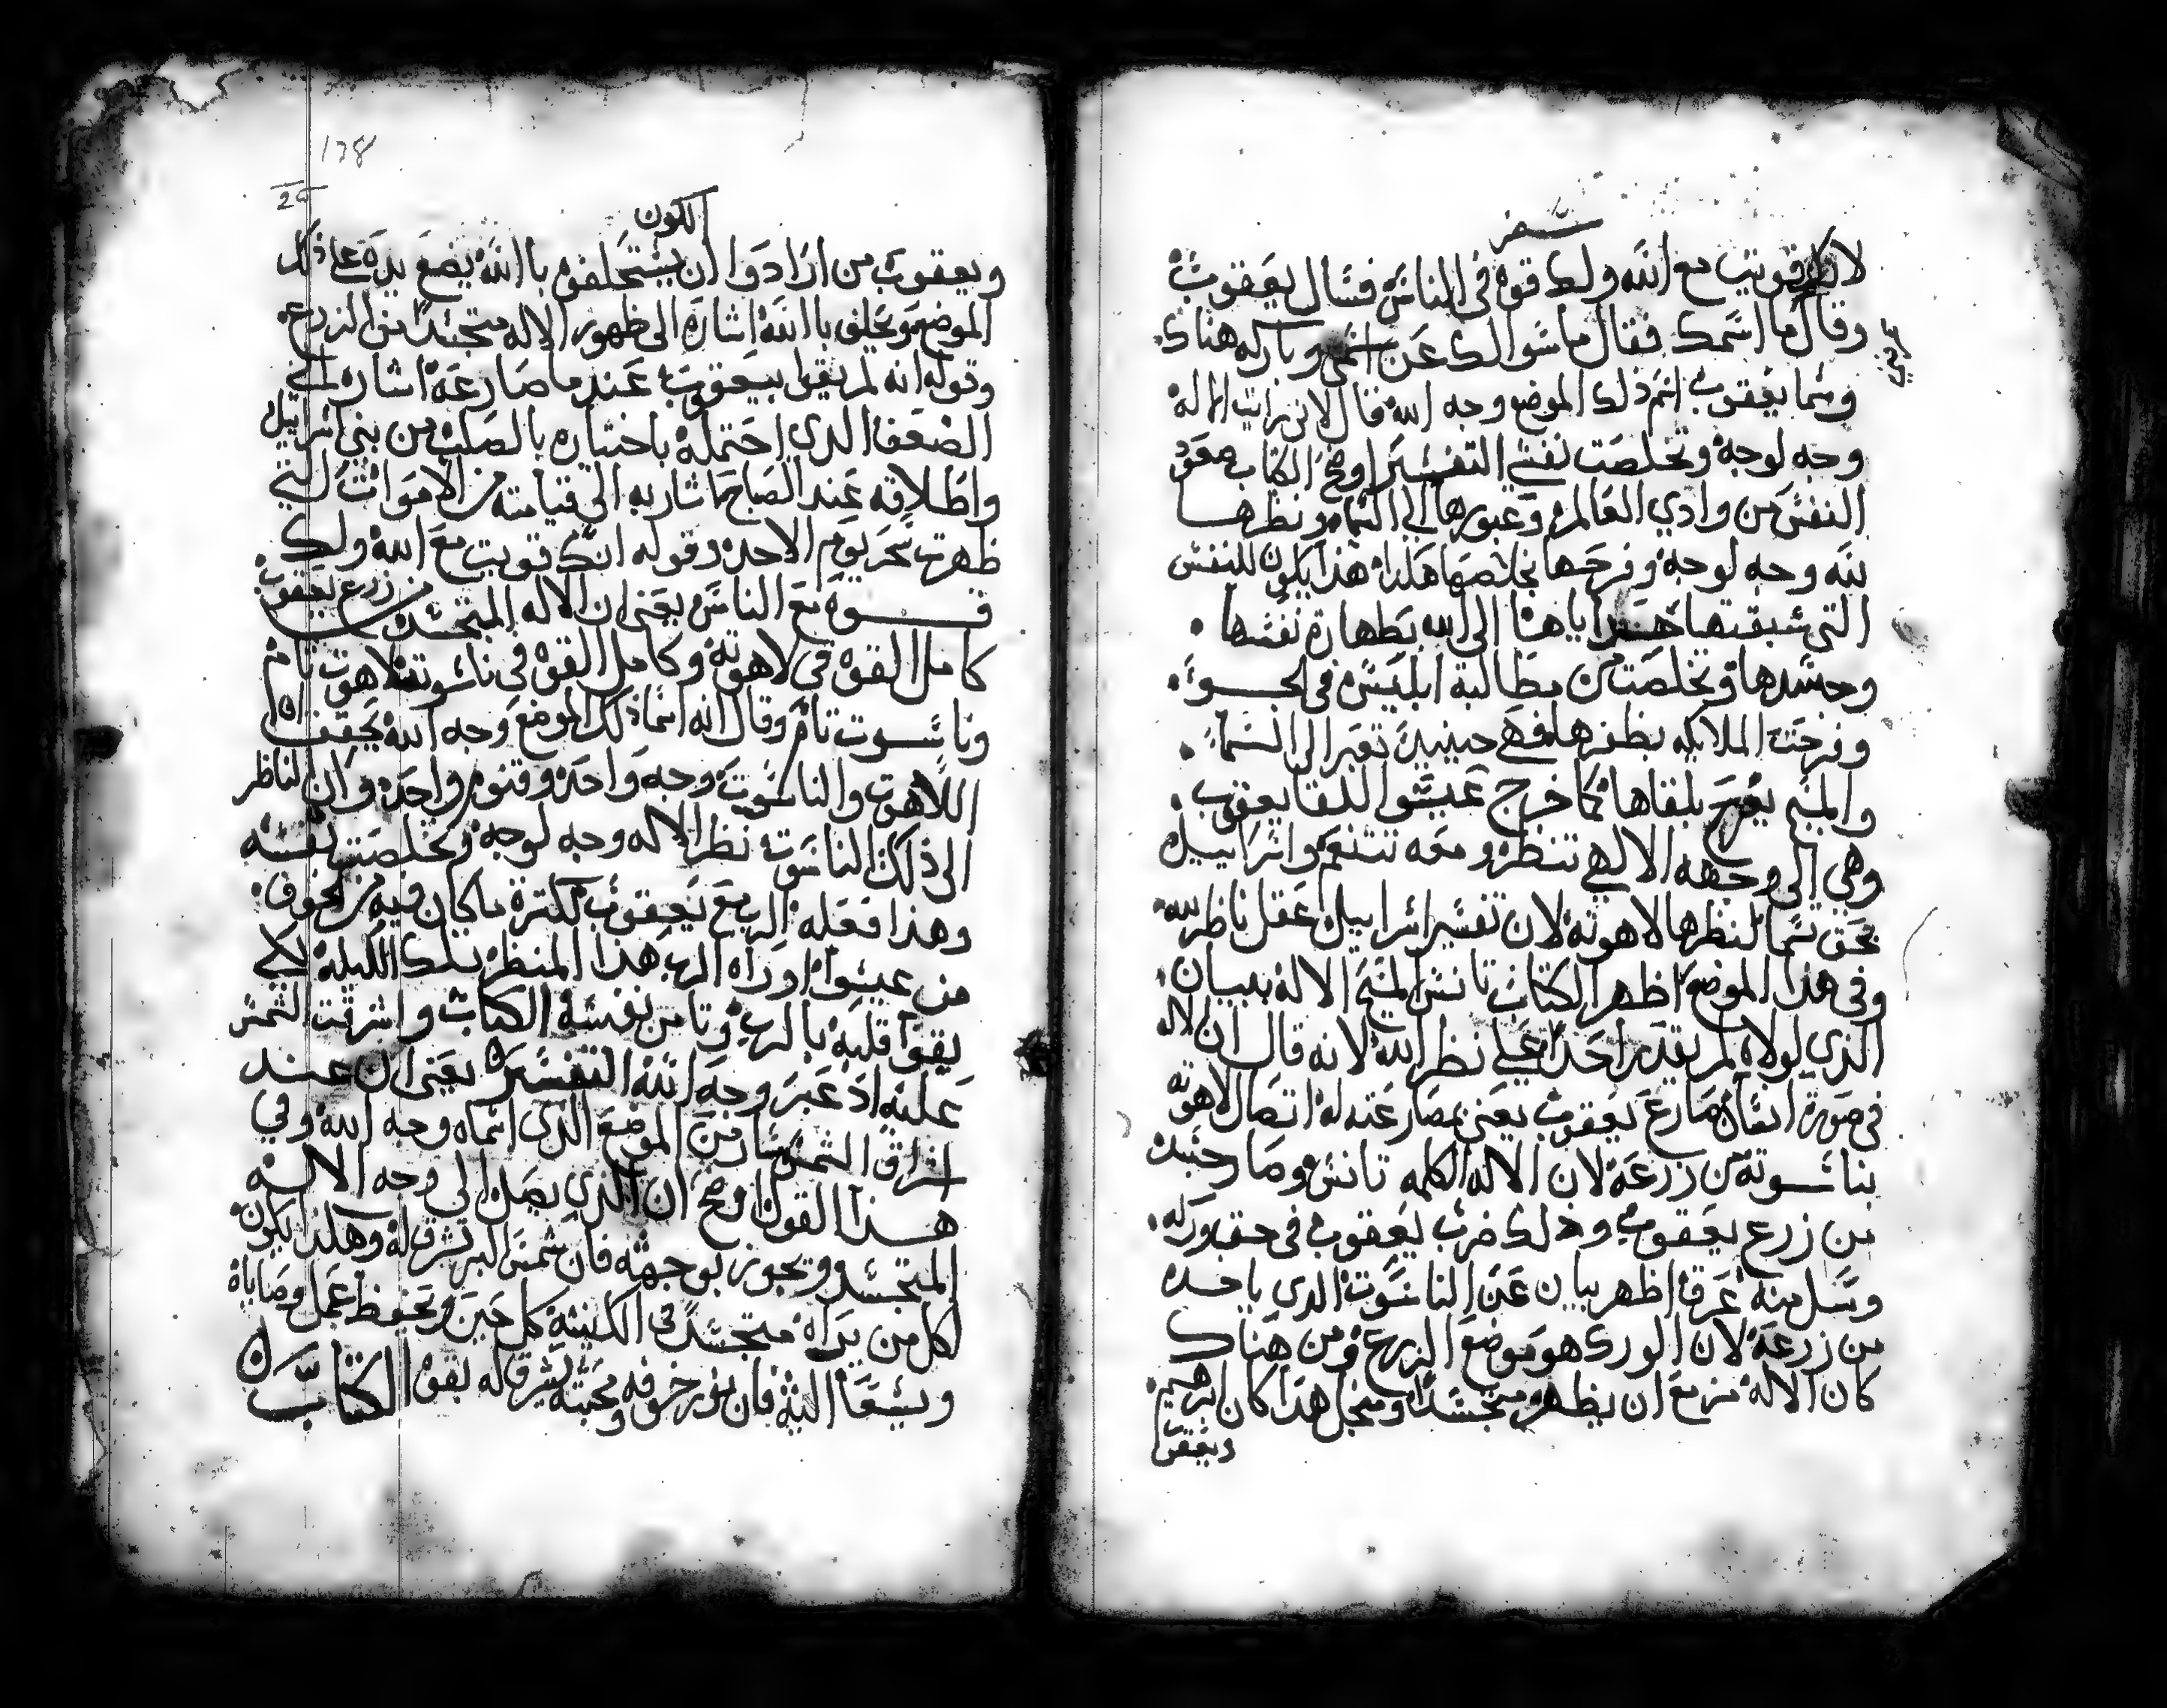 سفر
لانك قويت مع الله ولك قوة في الناس فسال يعقوب
وقال ما اسمك فقال ما سوالك عن اسمي وباركه هناك
وسما يعقوب اسم ذلك الموضع وجه الله قال لاني رايت الاله
وجه لوجه وتخلصت نفسي التفسير اوضح الكتاب صعود
النفس من وادي العالم وعبورها الي السما ونظرها
لله وجه لوجه وفرحها بخلاصها هكذا هذا يكون للنفس
التي سبقتها الى الله بطهارة نفسها
وجسدها وتخلصت من مطالبة ابليس في الجو
وفرحت الملايكه بظفرها فهي حينيذ تعبر الى السما
والمسيح يفرح بلقاها كما خرج عيسو للقا يعقوب
وهي الى وجهه الالهي تنظر ومعه تتنعم واسراييل
بحق تسما لنظرها لاهوته لان تفسير اسراييل عقل ناظر لله
وفي هذا الموضع اظهر الكتاب تانس المسيح الاله ببيان
الذي لولاه لم يقدر احدا علي نظر الله لانه قال ان الاله
في صورة انسان صارع يعقوب يعني بمصارعته له اتصال لاهوته
بناسوته من زرعه لان الاله الكلمه تانس وصار جسد
من زرع يعقوب وكذلك ضرب يعقوب في حق وركه
وسل منه عرق اظهر بيان عن الناسوت الدي ياخده
من زرعه لان الورك هو موضع الزرع ومن هناك
كان الاله مزمع ان يظهر متجسدا ومن اجل هدا كان ابرهيم
ويعقوب
138
الكون
ويعقوب من ارادوا ان يستحلفوه بالله يضع يده علي ذلك
الموضع ويحلف بالله اشاره الى ظهور الاله متجسدا من الزرع
وقوله انه لم يقوا بيعقوب عند ما صارعه اشاره الى
الضعف الدي احتمله باختياره بالصلب من بني اسراييل
واطلاقه عند الصباح اشار به الي قيامته من الاموات التي
ظهرت سحر يوم الاحد وقوله انك قويت مع الله ولك
قوة مع الناس يعني ان الاله المتجسد من زرع يعقوب
كامل القوة في لاهوته وكامل القوة في ناسوته لاهوت تام
وناسوت تام وقال انه اسما ذلك الموضع وجه الله يحقق ان
اللاهوت والناسوت وجه واحد وقنوم واحد وان الناظر
الى ذلك الناسوت نظر الاله وجه لوجه وتخلصت نفسه
وهذا فعله الرب مع يعقوب لكترة ما كان فيه من الخوف
من عيسوا اوراه الرب هذا المنظر تلك الليله لكي
يقوا قلبه بالرب وتامن نفسه الكتاب واشرقت الشمس
عليه اذ عبر وجه الله التفسير يعني ان عند
اشراق الشمس سار من الموضع الذي اسماه وجه الله وفي
هذا القول اوضح ان الذي يصل الي وجه الاله
المتجسد ويجوز بوجهه فان شمس البر تشرق له وهكذا يكون
لكل من يراه متجسدا في الكنيسه كل حين ويحفظ عمل وصاياه
ويسعا اليه فان نور خوفه ومحبته يشرق له بقوة الكتاب